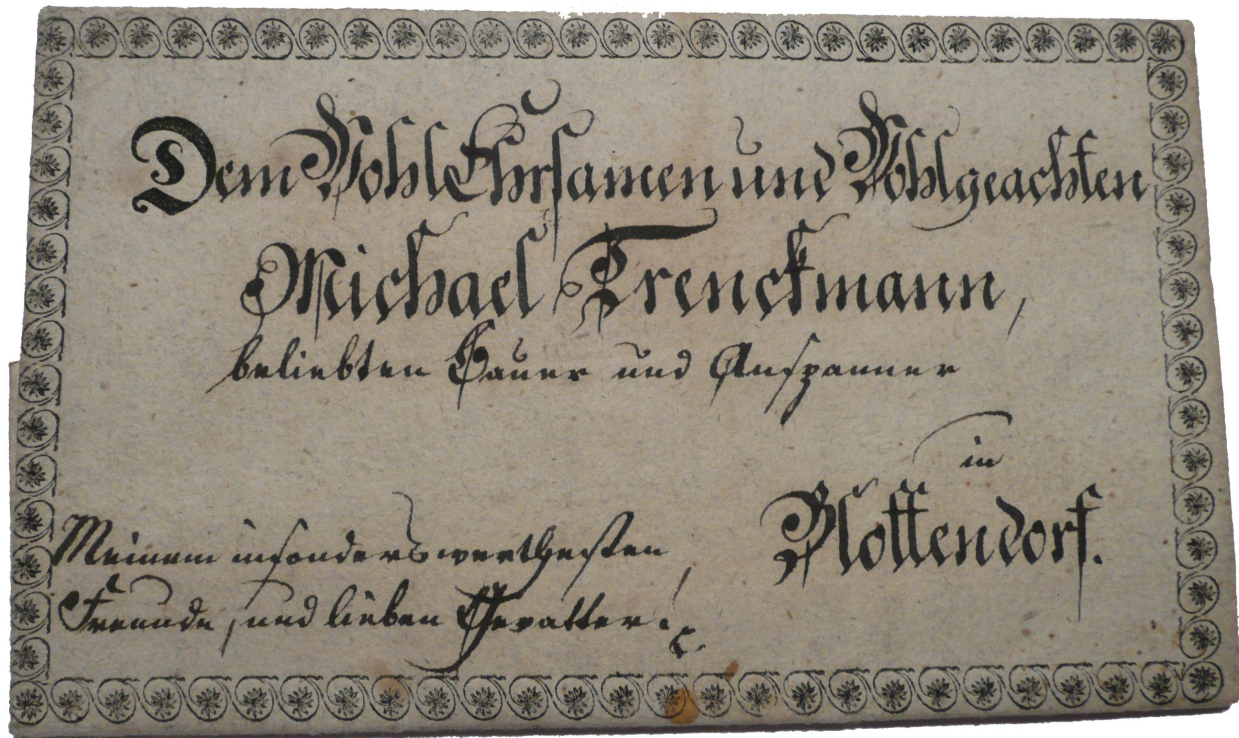 Dem WohlEhrsamen und Wohlgeachten
Michael Trenckmann,
beliebten Bauer und Anspanner
in
Plottendorf.
Meinem insonders werthesten
Freunde, und lieben Gevatter